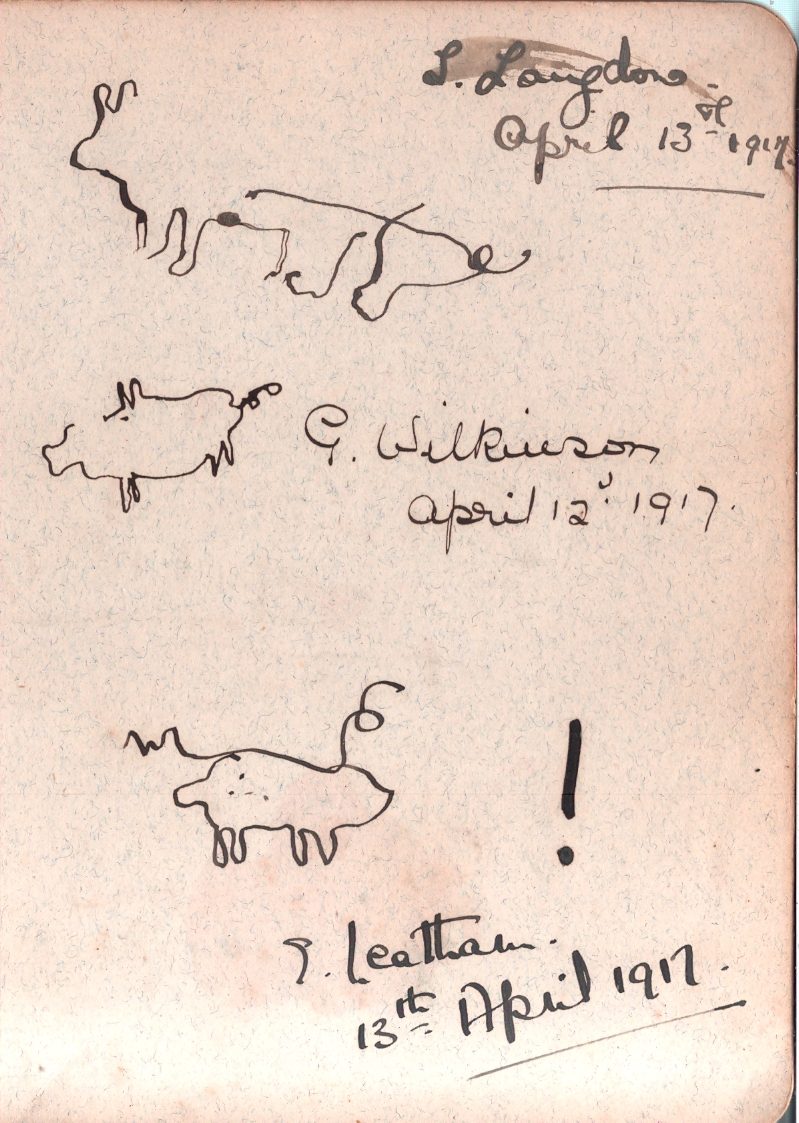 L. Langdon.
April 13th 1917.
G. Wilkinson
April 12th 1917.
!
G. Leatham.
13th April 1917.